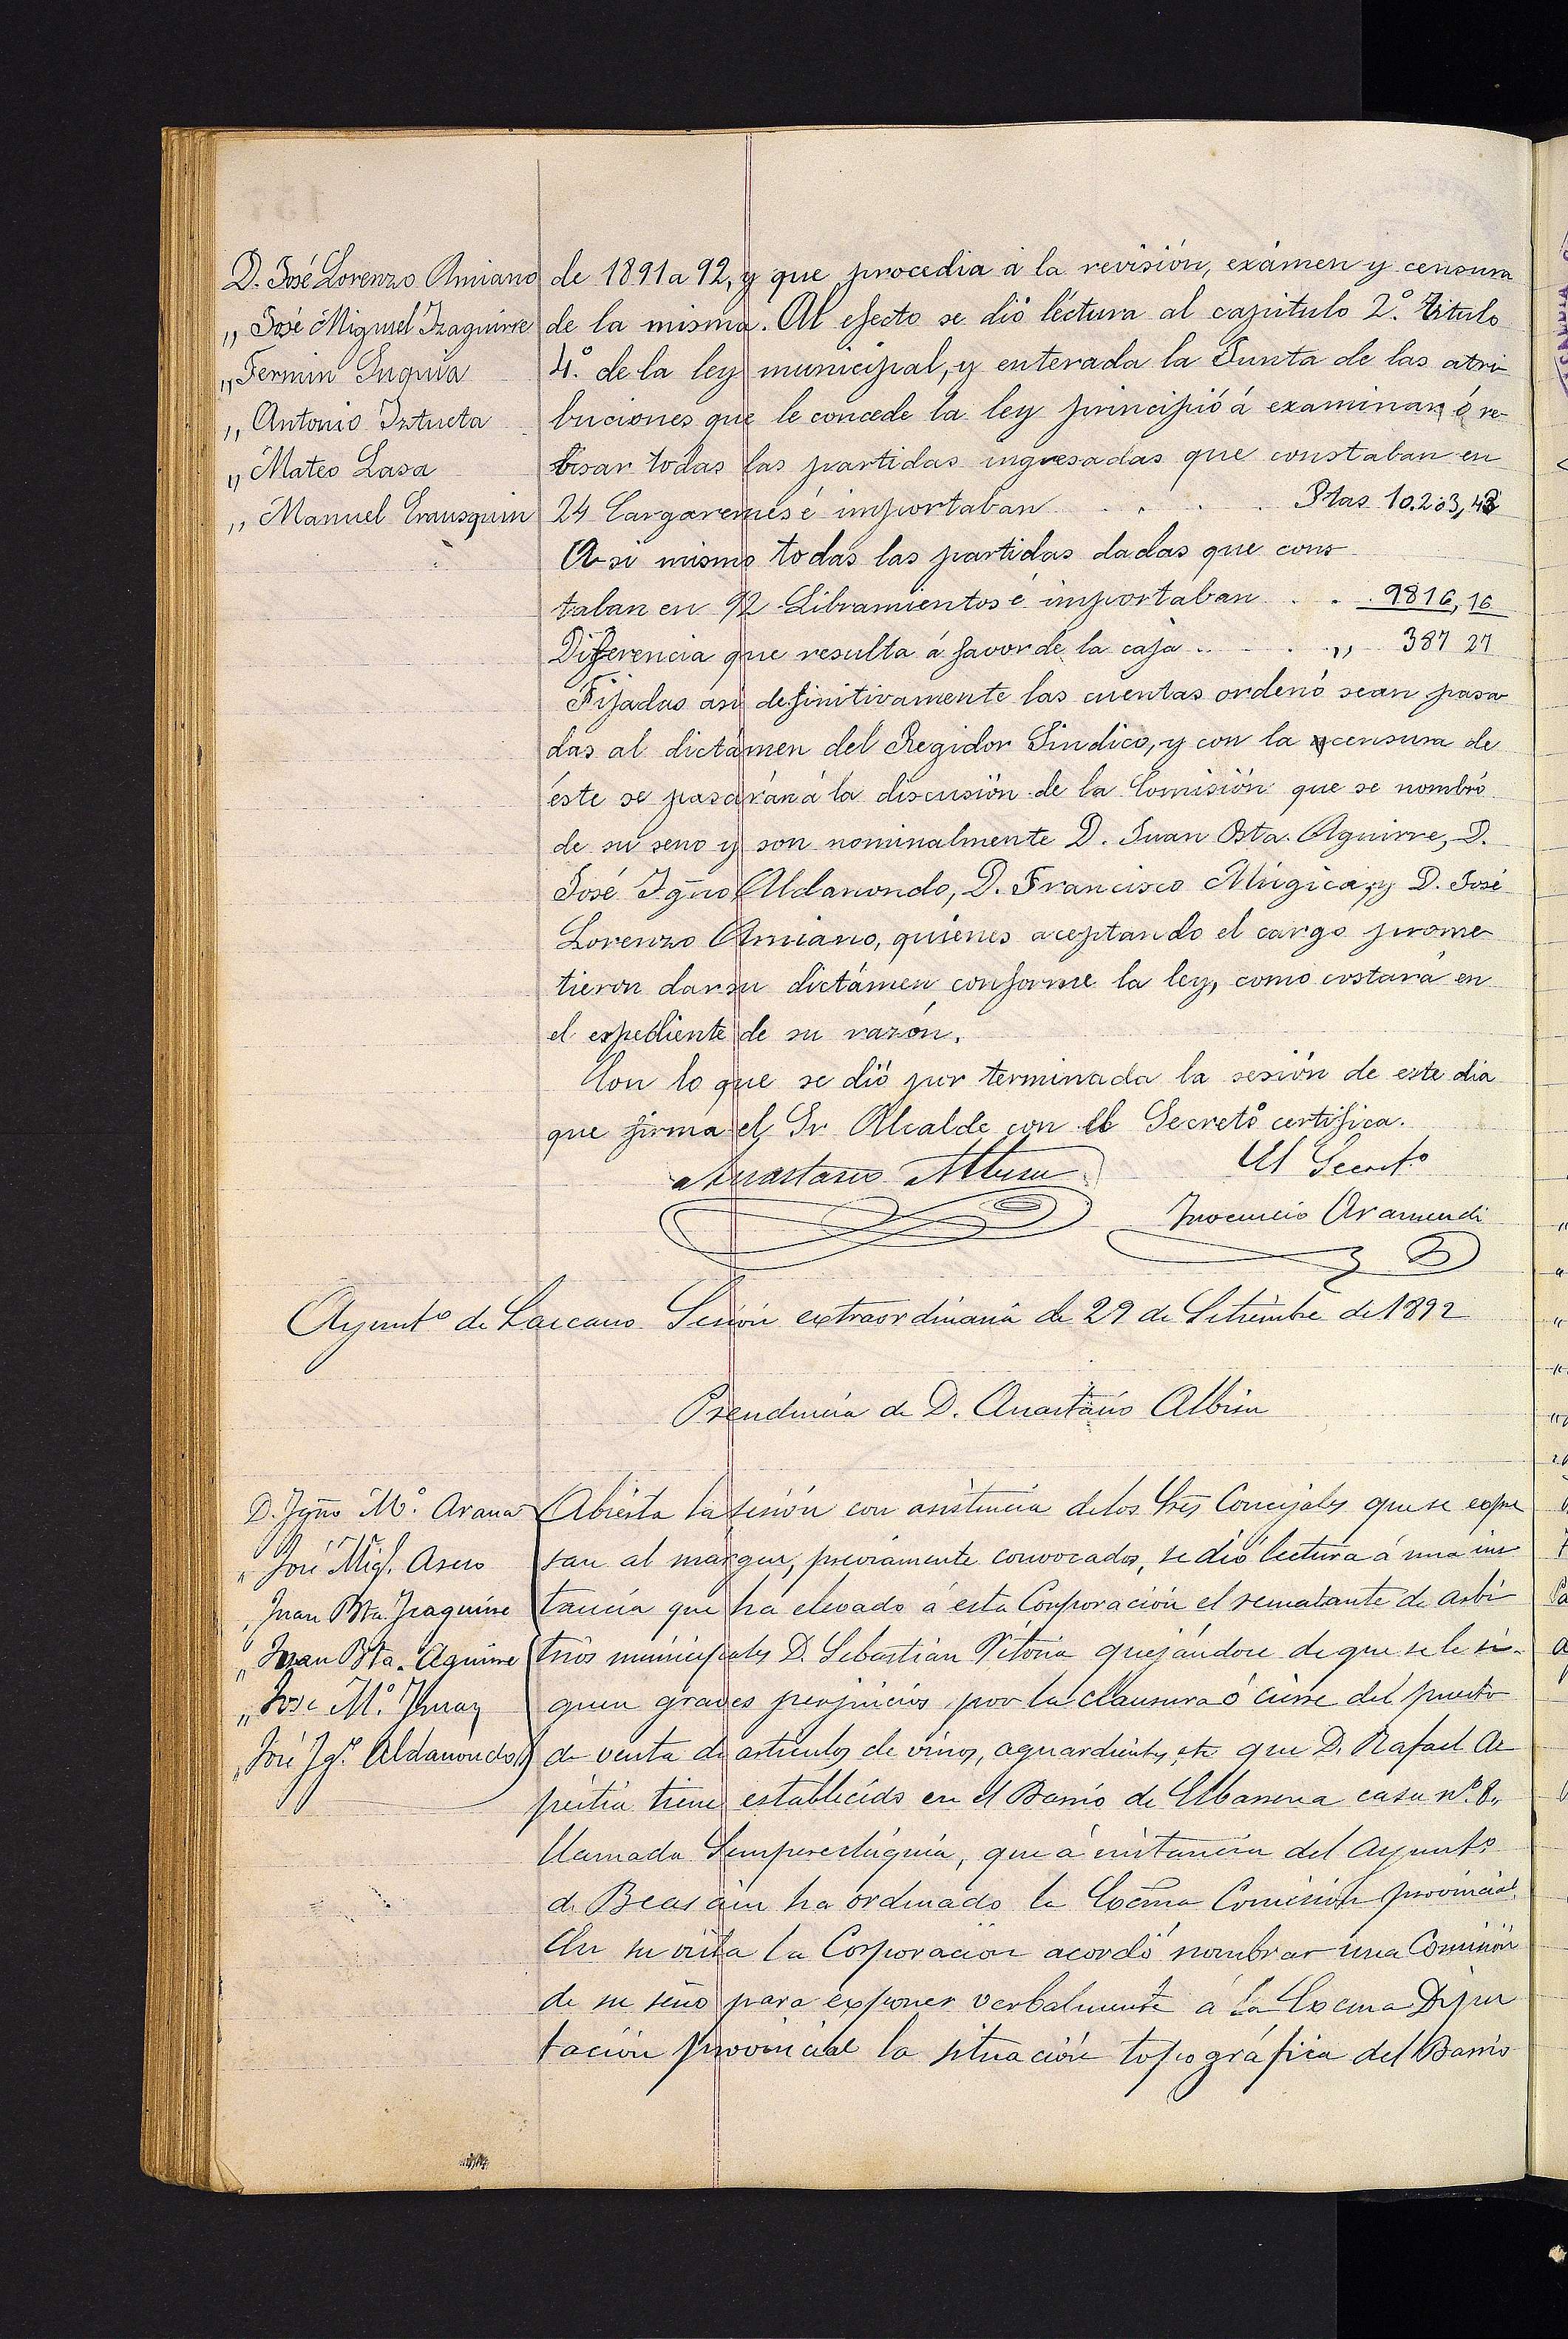 D. José Lorenzo Amiano
,, José Miguel Izaguirre
,, Fermin Suquia
,, Antonio Iztueta
,, Mateo Lasa
,, Manuel Erausquin
de 1891 a 92, y que procedia á la revisión, exámen y censura
de la misma. Al efecto se dió léctura al capitulo 2º. titulo
4º. de la ley municipal, y enterada la Junta de las atri-
buciones que le concede la ley principió á examinar ó re-
bisar todas las partidas ingresadas que constaban en
24 Cargaremes é importaban . . . Ptas 10.203,43
Asi mismo todas las partidas dadas que cons-
taban en 92 Libramientos é importaban . . . 9816,16
Diferencia que resulta á favor de la caja . . . ,, 387 27
Fijadas asi definitivamente las cuentas ordenó sean pasa-
das al dictámen del Regidor Sindico, y con la censura de
éste se pasarán á la discusión de la Comisión que se nombró
de su seno y son nominalmente D. Juan Bta. Aguirre, D.
José Igño Aldanondo, D. Francisco Múgica, y D. José
Lorenzo Amiano, quienes aceptando el cargo prome-
tieron dar su dictámen conforme la ley, como costará en
el expediente de su razón.
Con lo que se dió por terminada la sesión de este dia
que firma el Sr. Alcalde con el Secretº certifica.
Anastasio Albisu
El Secretº
Inocencio Aramendi
Ayuntº de Lazcano Sesión extraordinaria de 29 de Setiembre de 1892
Presidencia de D. Anastasio Albisu
D. Igño Mº. Arana
,, José Migl. Asero
,, Juan Bta. Izaguirre
,, Juan Bta. Aguirre
,, José Mº.
,, José Igº. Aldanondo
Abierta la sesión con asistencia de los Sres Concejales que se expre
san al margen, previamente convocados, se dió lectura á una ins
tancia que ha elevado á esta Corporación el rematante de arbi
trios municipales D. Sebastián Vitoria quejándose de que se le si-
guen graves perjuicios por la clausura ó cierre del puesto
de venta de articulos de vinos, aguardientes, etc que D. Rafael Az
peitia tiene establecido en el Barrio de Elbarrena casa nº. 8,
llamada que á instancia del Ayuntº
de Beasáin ha ordenado la Excma Comisión provincial.
En su vista la Corporación acordó nombrar una Comisión
de su seno para exponer verbalmente á la Excma Dipu
tación provincial la situación topográfica del Barrio